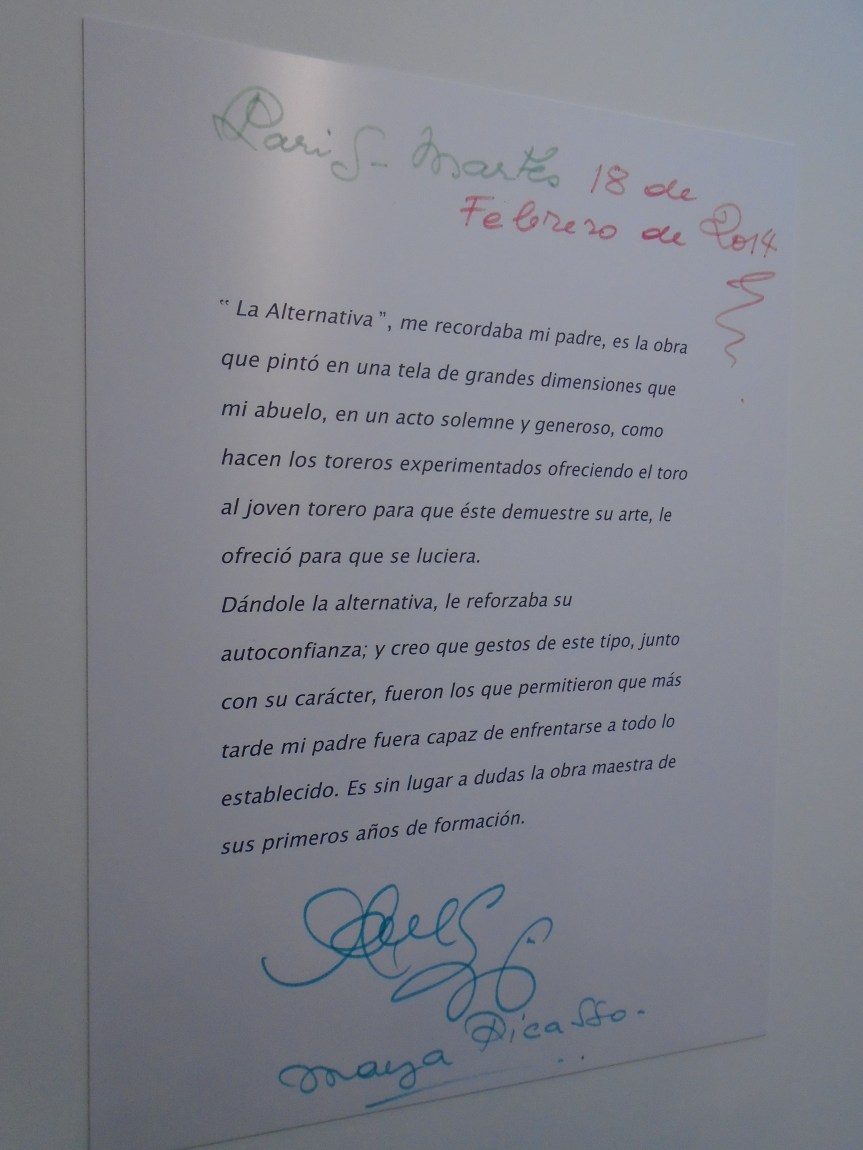 Paris - Martes 18 de
Febrero de 2014
“ La Alternativa ”, me recordaba mi padre, es la obra
que pintó en una tela de grandes dimensiones que
mi abuelo, en un acto solemne y generoso, como
hacen los toreros experimentados ofreciendo el toro
al joven torero para que éste demuestre su arte, le
ofreció para que se luciera.
Dándole la alternativa, le reforzaba su
autoconfianza; y creo que gestos de este tipo, junto
con su carácter, fueron los que permitieron que más
tarde mi padre fuera capaz de enfrentarse a todo lo
establecido. Es sin lugar a dudas la obra maestra de
sus primeros años de formación.
Maya Picasso.